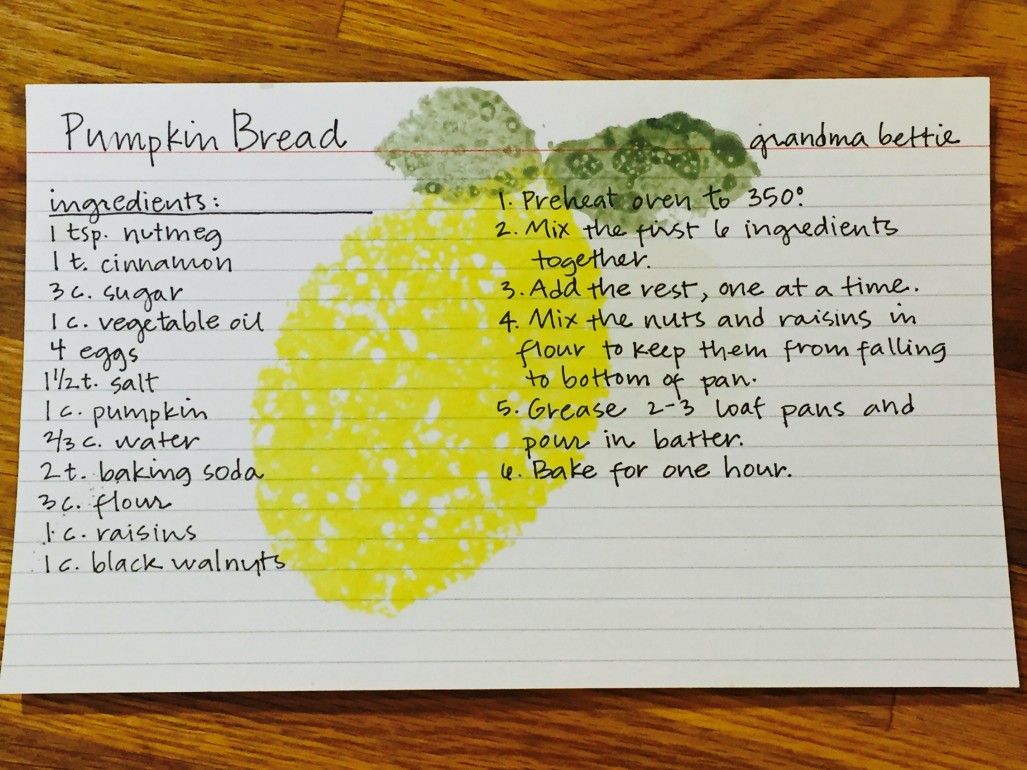 Pumpkin Bread
grandma bettie
ingredients:
1 tsp. nutmeg
1 t. cinnamon
3 c. sugar
1 c. vegetable oil
4 eggs
1 1/2 t. salt
1 c. pumpkin
2/3 c. water
2 t. baking soda
3 c. flour
1 c. raisins
1 c. black walnuts
1. Preheat oven to 350°.
2. Mix the first 6 ingredients
together.
3. Add the rest, one at a time.
4. Mix the nuts and raisins in
flour to keep them from falling
to bottom of pan.
5. Grease 2-3 loaf pans and
pour in batter.
6. Bake for one hour.